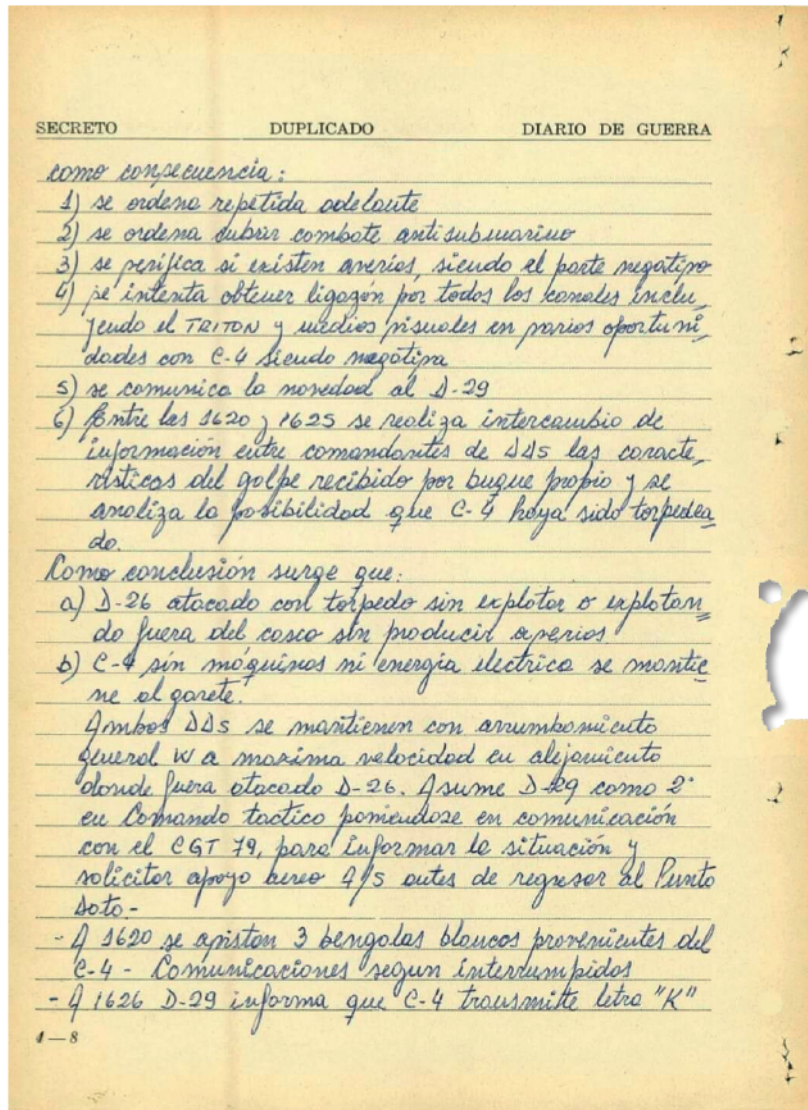 SECRETO DUPLICADO DIARIO DE GUERRA
como consecuencia:
1) se ordena repetida adelante
2) se ordena cubrir combate antisubmarino
3) se verifica si existen averias, siendo el parte negativo
4) se intenta obtener ligazón por todos los canales inclu_
yendo el TRITON y medios visuales en varias oportuni_
dades con C-4 siendo negativa
5) se comunica la novedad al D-29
6) Entre las 1620 y 1625 se realiza intercambio de
información entre comandantes de DDs las caracte_
rísticas del golpe recibido por buque propio y se
analiza la posibilidad que C-4 haya sido torpedea_
do.
Como conclusión surge que:
a) D-26 atacado con torpedo sin explotar o explotan_
do fuera del casco sin producir averias
b) C-4 sin máquinas ni energia electrica se mantie_
ne al garete.
Ambos DDs se mantienen con arrumbamiento
general W a maxima velocidad en alejamiento
donde fuera atacado D-26. Asume D-29 como 2°
en Comando tactico poniendose en comunicación
con el CGT 79, para informar la situación y
solicitar apoyo aereo A/S antes de regresar al Punto
Dato-
- A 1620 se avistan 3 bengalas blancas provenientes del
C-4 - Comunicaciones seguen interrumpidas
- A 1626 D-29 informa que C-4 transmite letra "K"
4—8